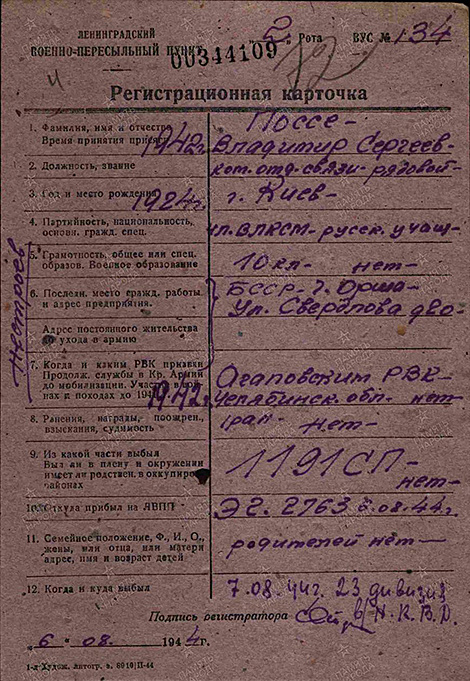 ЛЕНИНГРАДСКИЙ
ВОЕННО-ПЕРЕСЫЛЬНЫЙ ПУНКТ
00344109
"2" Рота ВУС № 134
Ч
Регистрационная карточка
1. Фамилия, имя и отчество Поссе-
Время принятия присяги 1942г. Владимир Сергеев-
2. Должность, звание ком. отд. связи- рядовой-
3. Год и место рождения 1924г. г. Киев-
4. Партийность, национальность,
основн. гражд. спец. чл. ВЛКСМ- русск. учащ-
5. Грамотность, общее или спец.
образов. Военное образование 10 кл- нет-
6. Последн. место гражд. работы БССР- г. Орша-
и адрес предприятия. Ул. Свердлова
Адрес постоянного жительства
до ухода в армию
нестроев
7. Когда и каким РВК призван
Продолж. службы в Кр. Армии Агаповским РВК-
до мобилизации. Участв. в вой-
нах и походах до 194 1942г. Челябинск. обл- нет
8. Ранения, награды, поощрен., 1ран- нет-
взыскания, судимость
9. Из какой части выбыл 1191 СП-
Был ли в плену и окружении нет-
имеет ли родствен. в оккупиров.
районах
10. Откуда прибыл на ЛВПП ЭГ. 2763 6.08.44г.
11. Семейное положение, Ф., И., О., родителей нет-
жены, или отца, или матери
адрес, имя и возраст детей
12. Когда и куда выбыл 7.08.44г. 23 дивизия
в/Н.К.В.Д.
Подпись регистратора
"6" 08. 1944г.
1-я Худож. литогр. з. 8010|П-44